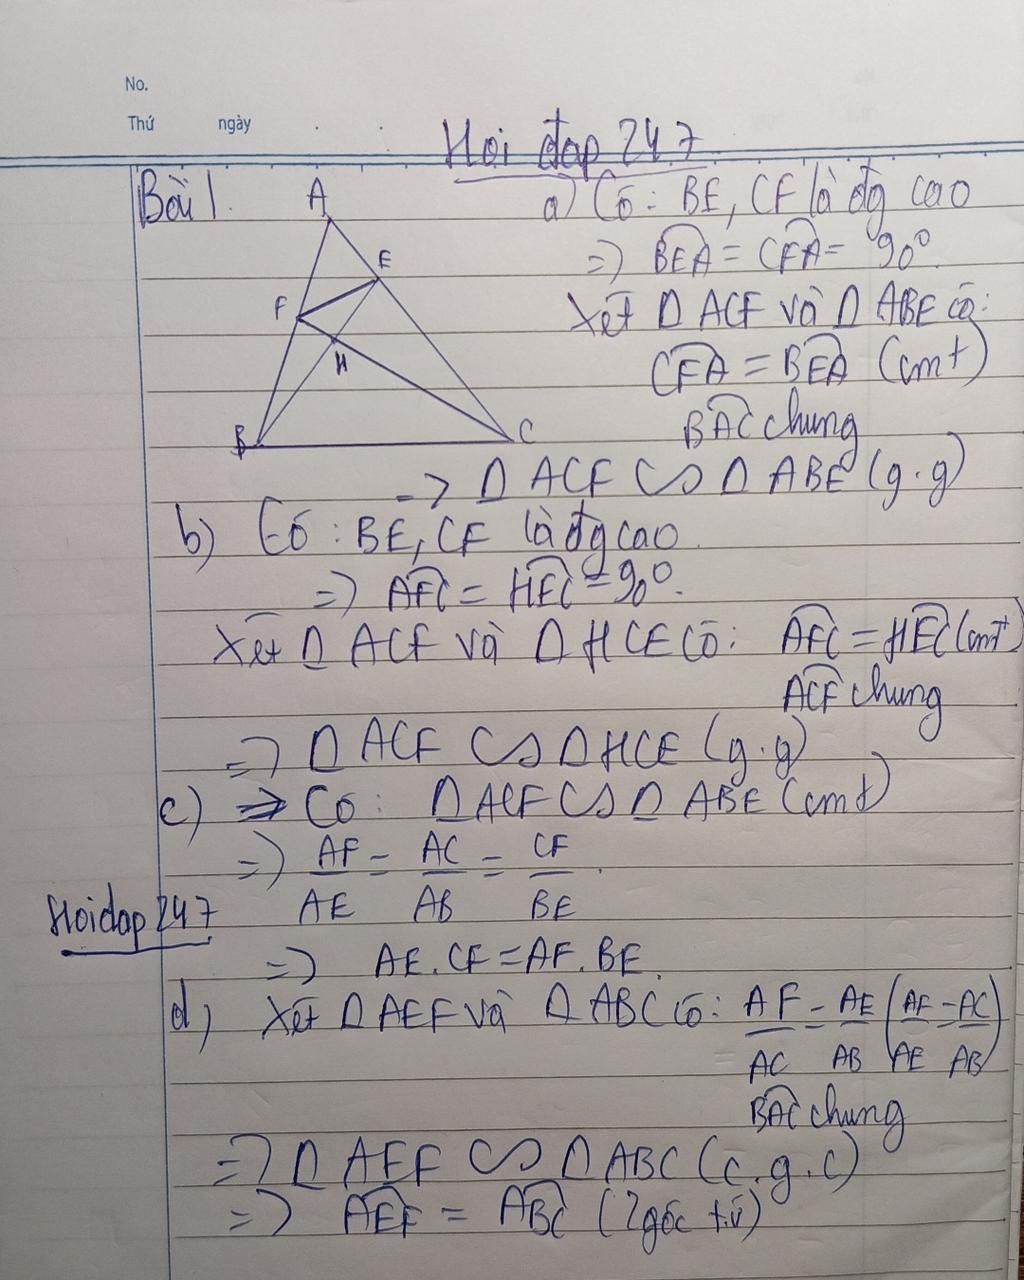 No.
Thứ ngày
Hỏi đáp 247
Bài 1.
A
E
F
H
B
C
a) Có: BE, CF là đg cao
=> BEA = CFA = 90°
Xét Δ ACF và Δ ABE có:
CFA = BEA (cmt)
BAC chung
=> Δ ACF ∽ Δ ABE (g.g)
b) Có: BE, CF là đg cao.
=> AFC = HEC = 90°.
Xét Δ ACF và Δ HCE có: AFC = HEC (cmt)
ACF chung
=> Δ ACF ∽ Δ HCE (g.g)
c) => Có: Δ ACF ∽ Δ ABE (cmt)
=> AF/AE = AC/AB = CF/BE.
Hoidap 247
=> AE.CF = AF.BE.
d) Xét Δ AEF và Δ ABC có: AF/AC = AE/AB (AF/AE = AC/AB)
BAC chung
=> Δ AEF ∽ Δ ABC (c.g.c)
=> AEF = ABC (2 góc t.ứ)